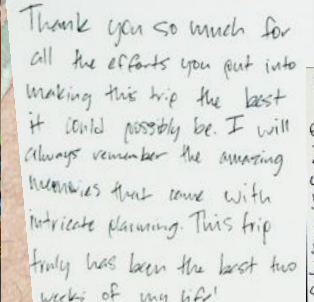 Thank you so much for
all the efforts you put into
making this trip the best
it could possibly be. I will
always remember the amazing
memories that came with
intricate planning. This trip
truly has been the best two
weeks of my life!